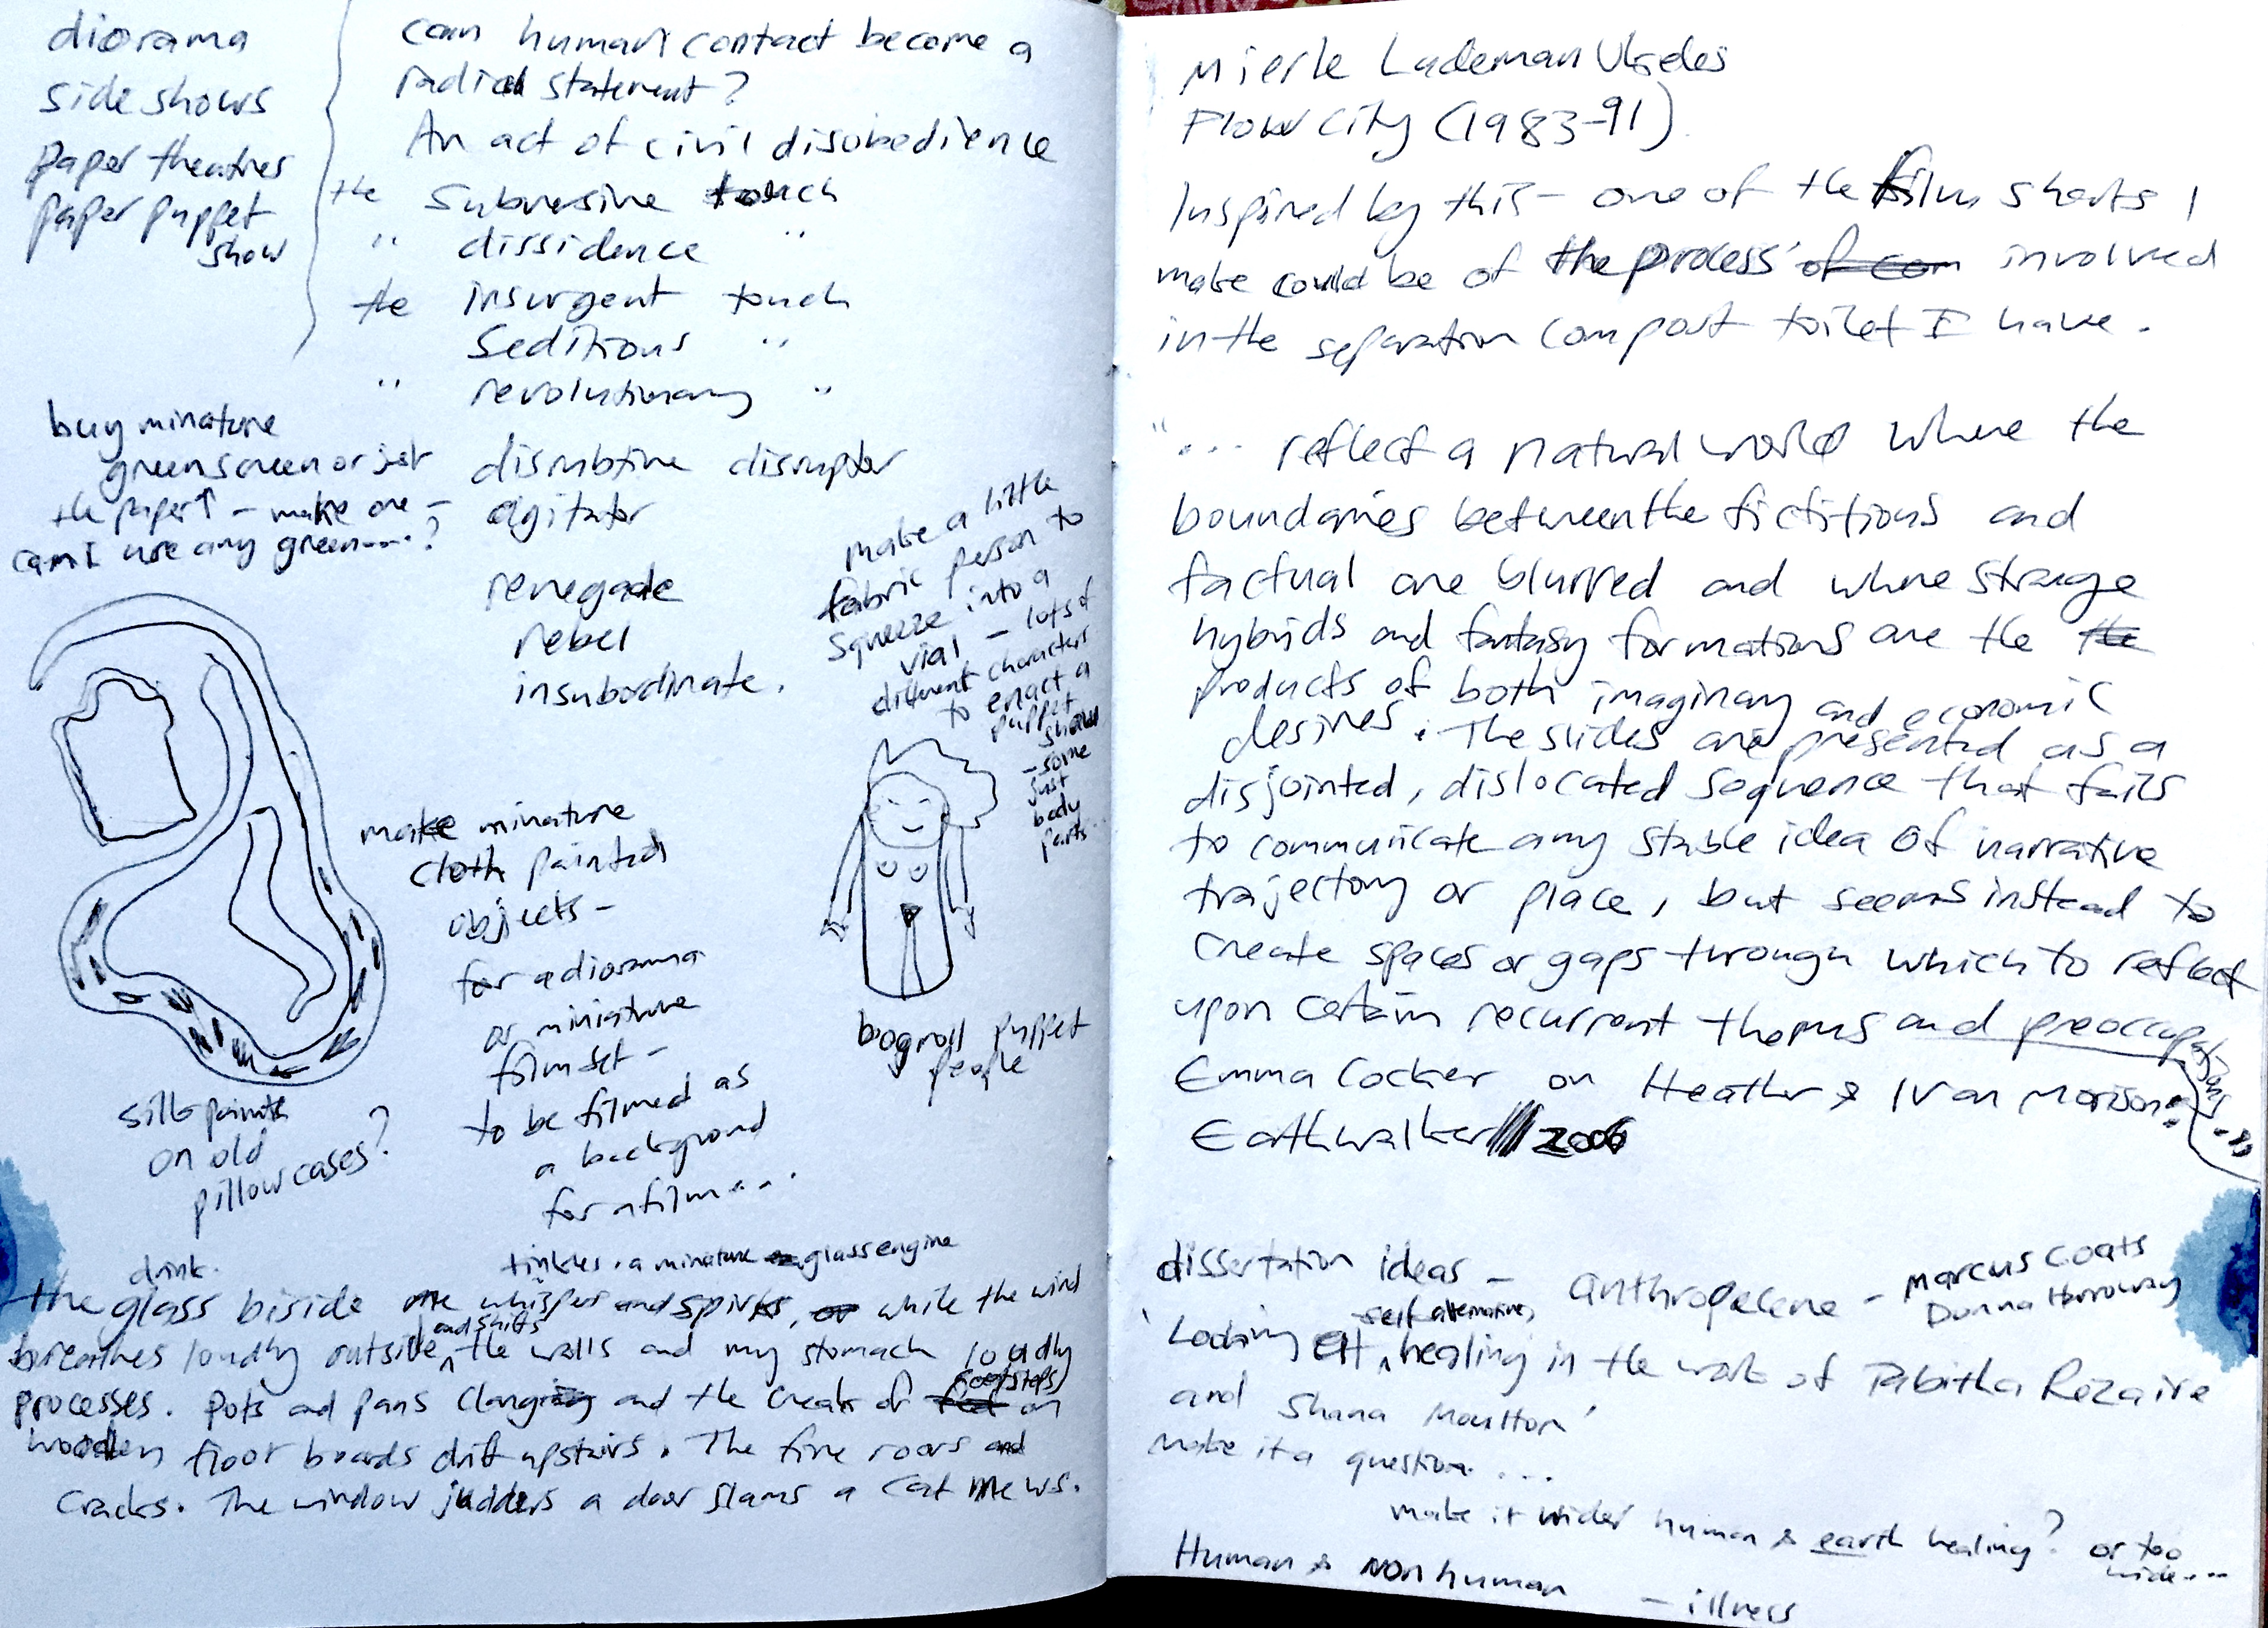 diorama
side shows
paper theatres
paper puppet
show
can human contact become a
radical statement?
An act of civil disobedience
the subversive touch
" dissidence "
the insurgent touch
Seditious "
" revolutionary "
disruptive disrupter
agitator
renegade
rebel
insubordinate.
buy minature
greenscreen or just
the paper ↑ - make one -
can I use any green....?
make a little
fabric person to
squeeze into a
vial - lots of
different characters
to enact a
puppet
show
- some
just
body
parts...
bogroll puppet
people
make minature
cloth painted
objects -
for a diorama
or miniature
film set -
to be filmed as
a background
for a film...
silk paints
on old
pillowcases?
drink.
tinkles. a minature glass engine
the glass biside me whispers and spirks, or while the wind
breathes loudly outside, and shifts the walls and my stomach loudly
processes. Pots and pans clanging and the creak of footsteps on
wooden floor boards drift upstairs. The fire roars and
cracks. The window judders a door slams a cat mews.
Mierle Lademan Ukeles
Flow City (1983-91)
Inspired by this - one of the film shorts I
make could be of the process of com involved
in the separation compost toilet I have.
"... reflect a natural world where the
boundaries between the fictitious and
factual are blurred and where strange
hybrids and fantasy formations are the the
products of both imaginary and economic
desires. The slides are presented as a
disjointed, dislocated sequence that fails
to communicate any stable idea of narrative
trajectory or place, but seems instead to
create spaces or gaps through which to reflect
upon certain recurrent themes and preoccupations."
Emma Cocker on Heather & Ivan Morison:
Earthwalker 2006
dissertation ideas - anthropecene - Marcus Coats
Donna Harroway
'Looking at self alternative, healing in the work of Tabitha Rezaire
and Shana Moulton'
make it a question...
make it wider human & earth healing? or too
wide....
Human & Non human - illness